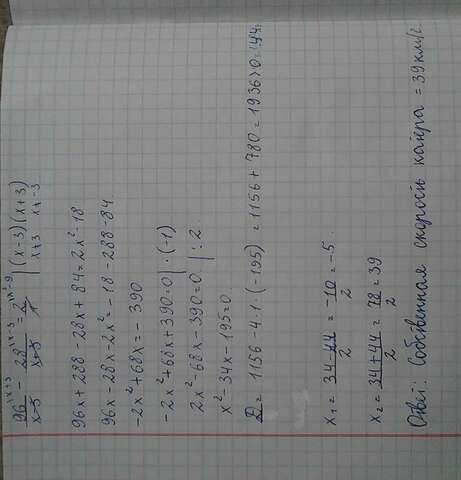 96/x-3 - 28/x+3 = 2/1 | (x-3)(x+3)
x≠3 x≠-3
96x+288-28x+84=2x²-18
96x-28x-2x²=-18-288-84
-2x²+68x=-390
-2x²+68x+390=0 | :(-1)
2x²-68x-390=0 | :2
x²-34x-195=0
D=1156-4·1·(-195)=1156+780=1936>0
x₁=34-44/2=-10/2=-5
x₂=34+44/2=78/2=39
Ответ: Собственная скорость катера = 39 км/ч